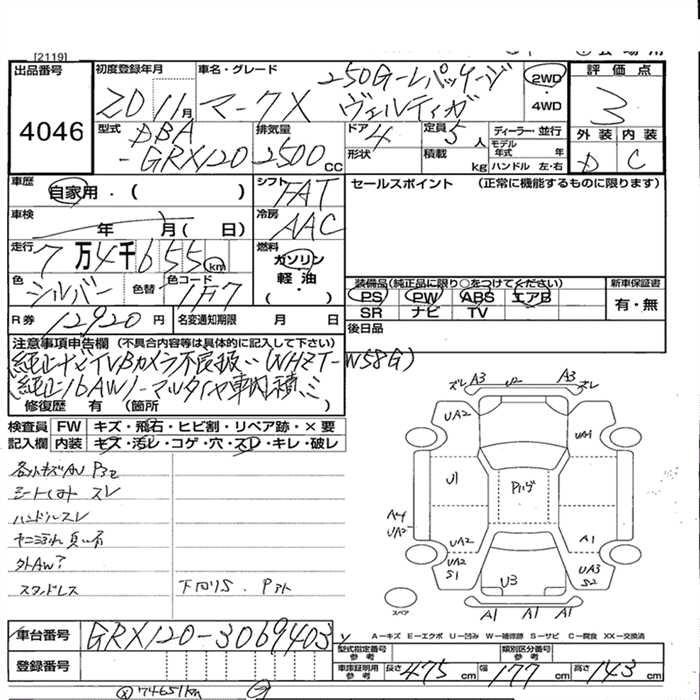 [2119]
出品番号
4046
初度登録年月
20年11月
車名・グレード
マークX
250G-Lパッケージ
ヴェルティガ
2WD
4WD
評価点
3
外装 内装
D C
型式
DBA
-GRX120
排気量
2500
cc
ドア
4
定員
5人
形状
積載
kg
ディーラー・並行
モデル年式 年
ハンドル 左・右
車歴
自家用・( )
シフト
FAT
セールスポイント (正常に機能するものに限ります)
車検
年 月( 日)
冷房
AAC
走行
7万4千655km
燃料
ガソリン
軽油・
( )
色
シルバー
色替
色コード
1F7
装備品(純正品に限り○をつけてください)
PS PW ABS エアB
SR ナビ TV
新車保証書
有・無
R券
12920円
名変通知期限 月 日
後日品
注意事項申告欄(不具合内容等は具体的に記入して下さい)
純正ナビTVBカメラ不良扱い(NHZT-W58G)
純正16AWノーマルタイヤ車内積
修復歴 有(箇所 )
検査員記入欄
FW キズ・飛石・ヒビ割・リペア跡・×要
内装 キズ・汚レ・コゲ・穴・スレ・キレ・破レ
シート スレ
ハンドルスレ
外AW?
スタッドレス
下回りS.
ズレ A3 A3 ズレ
UA2 UA1
U1
A4
UA2
UA2 A1
UA2 UA3
S1 U3 S2
A1 A1 A1
スペア
A-キズ E-エクボ U-凹み W-補修跡 S-サビ C-腐食 XX-交換済
車台番号
GRX120-3069403
登録番号
型式指定番号 参考
類別区分番号 参考
車庫証明用 参考
長さ 475cm 幅 177cm 高さ 143cm
74651km